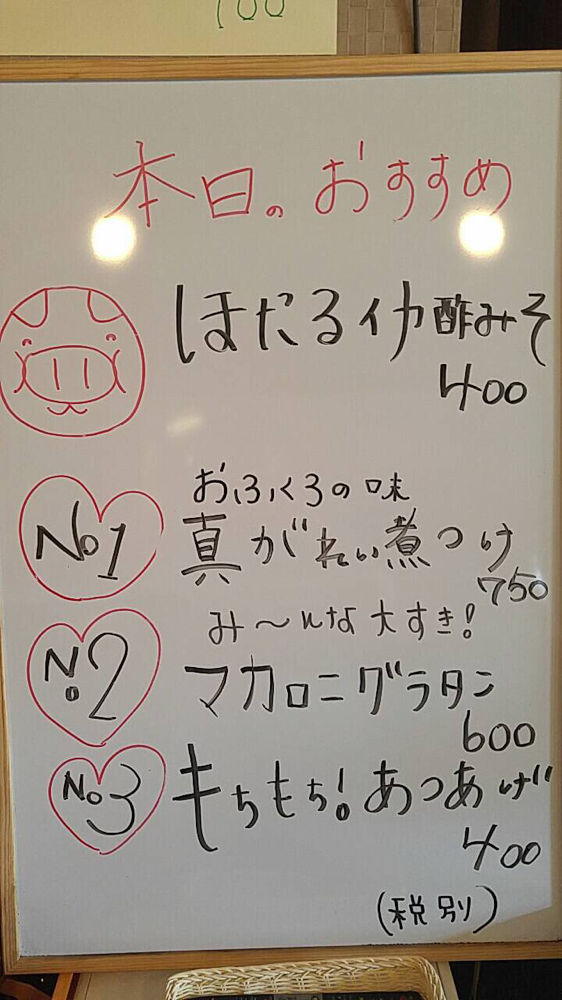 100
本日のおすすめ
ほたるイカ酢みそ
400
おふくろの味
No1
真がれい煮つけ
750
み〜んな大すき!
No2
マカロニグラタン
600
No3
もちもち!あつあげ
400
(税別)